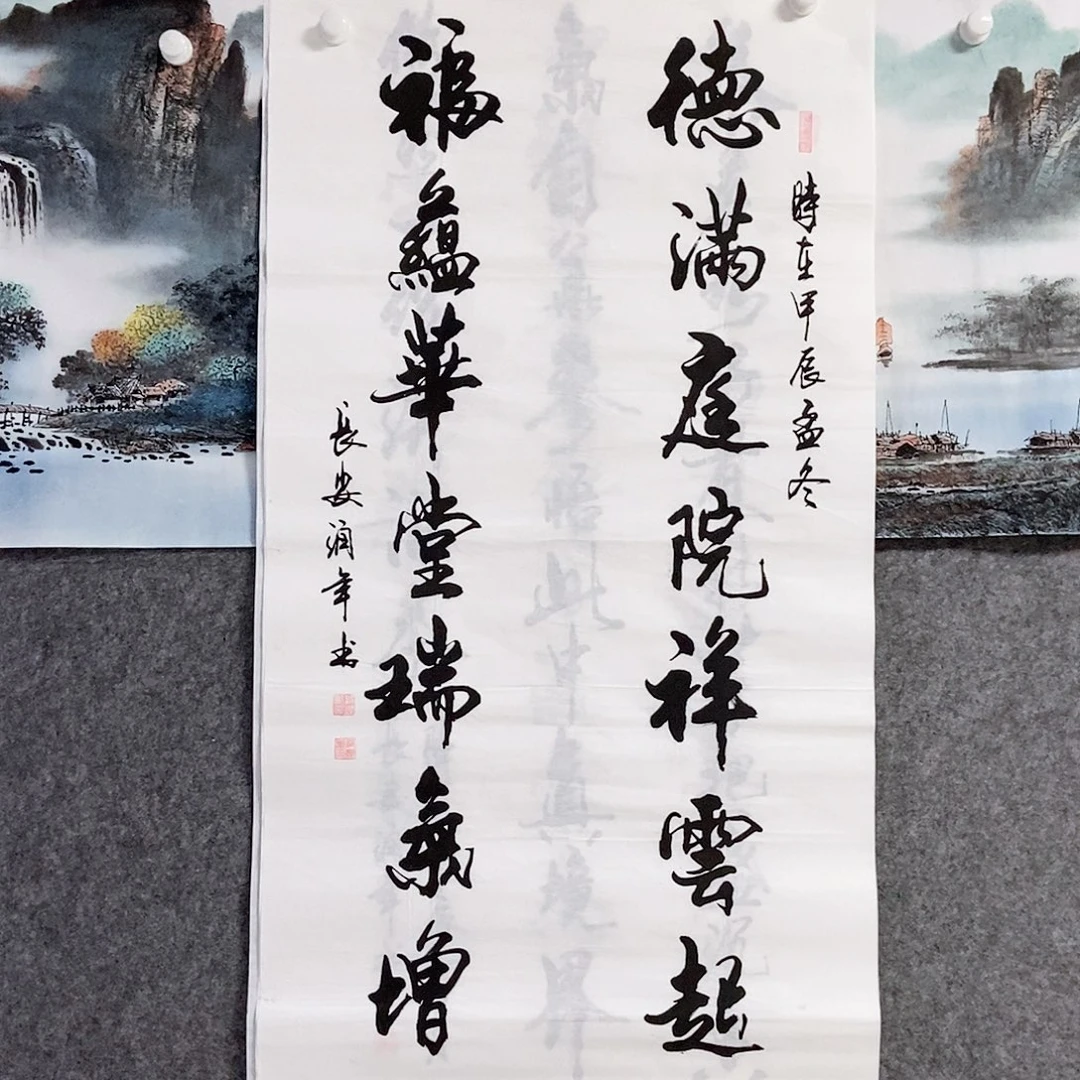 時在甲辰孟冬
德滿庭院祥雲起
福蘊華堂瑞氣增
長安潤年书